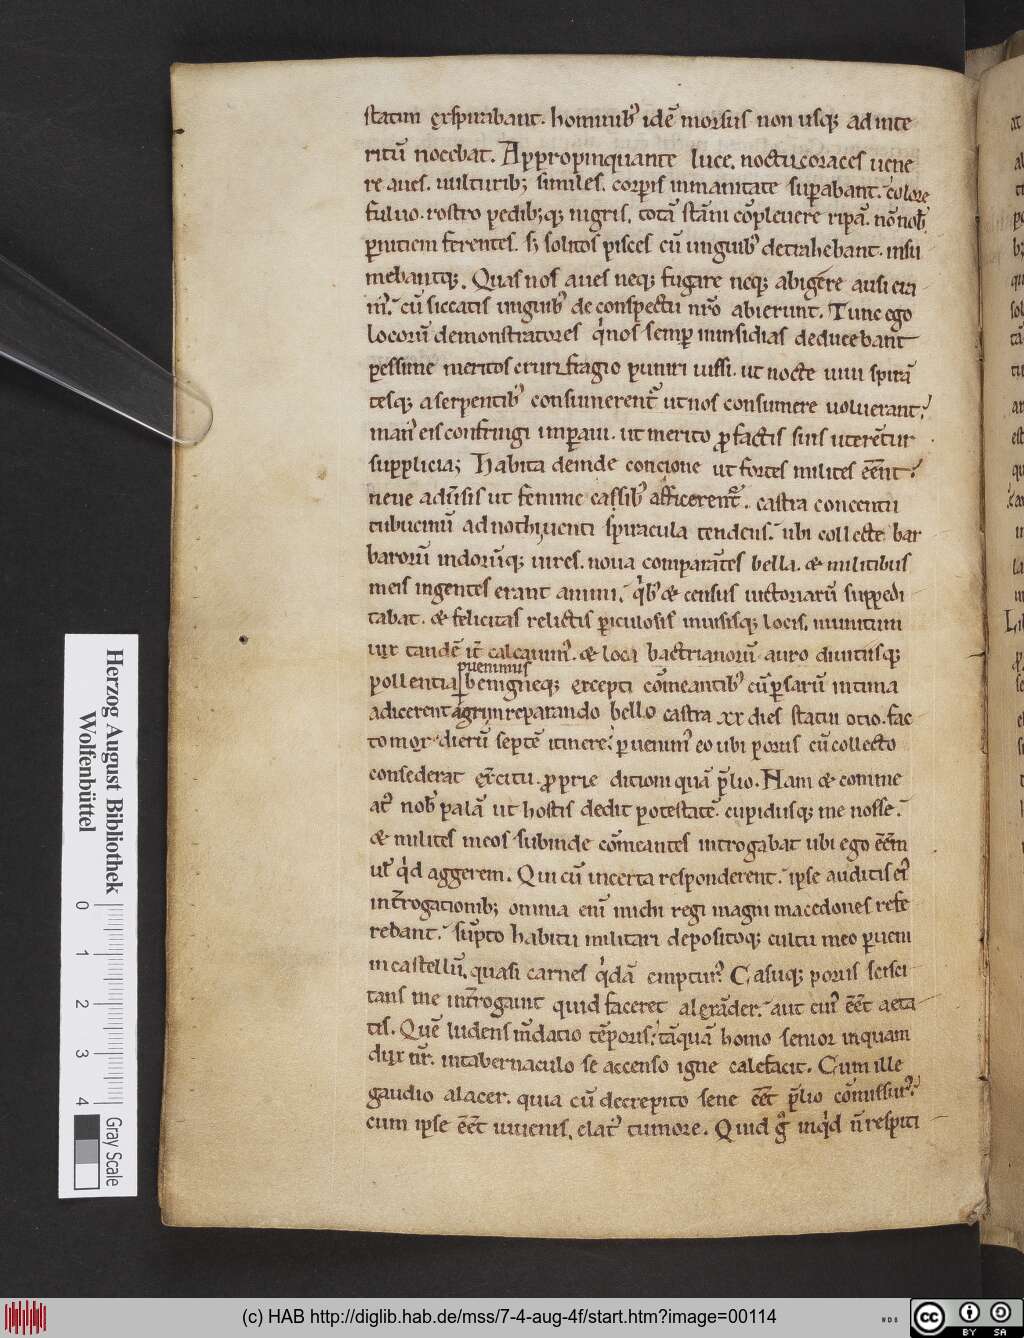 statim exspirabant. hominib' idē morsus non usq; ad inte
ritū nocebat. Appropinquante luce. nocticoraces uene
re aues. uulturib; similes. corporis inmanitate supabant. colore
fuluo. rostro pedib;q; nigris. totā stāni cōpleuere ripā. nō nob
pnitiem ferentes. s; solitos pisces cū unguib' detrahebant. insu
mebantq;. Quas nos aues neq; fugare neq; abigere ausi era
m'. cū siccatis unguib' de conspectu nr̄o abierunt. Tunc ego
locorū demonstratores q'nos semp in insidias deducebant
pessime meritos crurifragio puniri iussi. ut nocte uiui spirā
tesq; a serpentib' consumerent' ut nos consumere uoluerant.
man' eis confringi imparui. ut merito p factis suis uterētur
supplicia; Habita deinde concione ut fortes milites eēnt.
neue aduersis ut femine cassib' afficerent'. castra concentu
tubicinū ad nothi uenti spiracula tendens. ubi collecte bar
barorū indorūq; uires. noua comparātes bella. & militibus
meis ingentes erant animi. q'b' & census uictoriarū suppedi
tabat. & felicitas relictis piculosis inuisisq; locis. munitum
iux tandē it calcauim'. & loca bactrianorū auro diuitiisq;
puenimus
pollentia benigneq; excepti cōmeantib' cū psarū intima
adicerent agri in reparando bello castra xx dies statiui otio. fac
to mox dierū septē itinere. puenim' eo ubi porus cū collecto
consederat exercitu. proprie dicioni quā plio. Nam & comme
at' nob palā ut hostis dedit potestatē. cupidusq; me nosse.
& milites meos subinde cōmeantes introgabat ubi ego eēm
ut q'd aggerem. Qui cū incerta responderent. ipse auditis ei'
intrrogationib; omnia eni michi regi magni macedones refe
rebant. sūpto habitu militari depositoq; cultu meo pueni
in castellū. quasi carnes q'dā emptur'. Casuq; porus sci sci
tans me introgauit quid faceret alexāder. aut cui' eēt aeta
tis. Quē ludens mdatio tēporis. tāquā homo senior inquam
dux nr. in tabernaculo se accenso igne calefacit. Cum ille
gaudio alacer. quia cū decrepito sene eēt plio cōmissur'.
cum ipse eēt iuuenis. elat' tumore. Quid g inq'd n respici
Herzog August Bibliothek
Wolfenbüttel
0 1 2 3 4
Gray Scale
(c) HAB http://diglib.hab.de/mss/7-4-aug-4f/start.htm?image=00114
WDB
cc BY SA